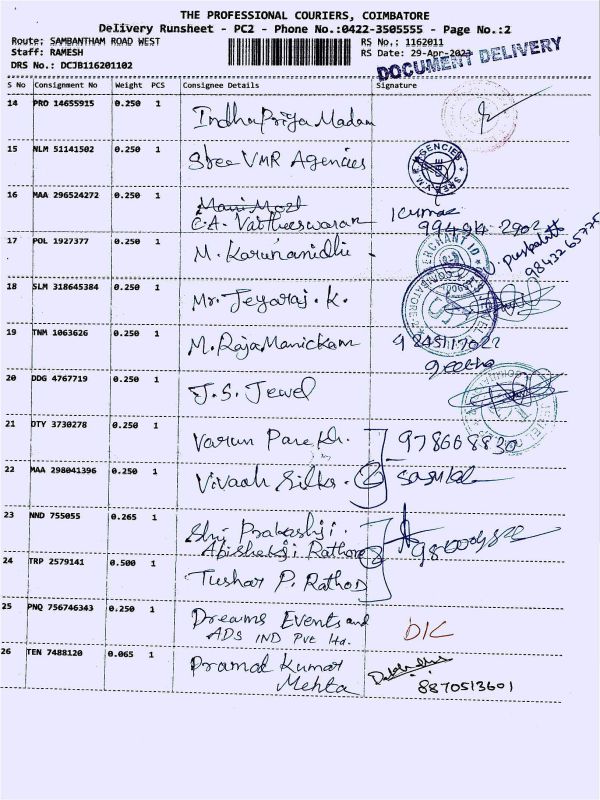 THE PROFESSIONAL COURIERS, COIMBATORE
Delivery Runsheet - PC2 - Phone No.:0422-3505555 - Page No.:2
Route: SAMBANTHAM ROAD WEST RS No.: 1162011
Staff: RAMESH RS Date: 29-Apr-2023
DRS No.: DCJB116201102 DOCUMENT DELIVERY
S No Consignment No Weight PCS Consignee Details Signature
14 PRO 14655915 0.250 1 IndhuPriya Madam
15 NLM 51141502 0.250 1 Sree VMR Agencies
AGENCIES
16 MAA 296524272 0.250 1
C.A. Vaitheeswaran
17 POL 1927377 0.250 1 M. Karunanidhi
9842265775
18 SLM 318645384 0.250 1 Mr. Jeyaraj. K.
19 TNM 1063626 0.250 1 M. RajaManickam
geetha
20 DDG 4767719 0.250 1 J.S. Jewel
21 DTY 3730278 0.250 1 Varun Parekh. 978668830
22 MAA 298041396 0.250 1 Vivaah Silks.
23 NND 755055 0.265 1 Shri Prakashji.
Abishekji Rathore
24 TRP 2579141 0.500 1 Tushar P. Rathod
25 PNQ 756746343 0.250 1 Dreams Events and
ADS IND Pvt Ltd. D/C
26 TEN 7488120 0.065 1 Pramod Kumar
Mehta 8870513601